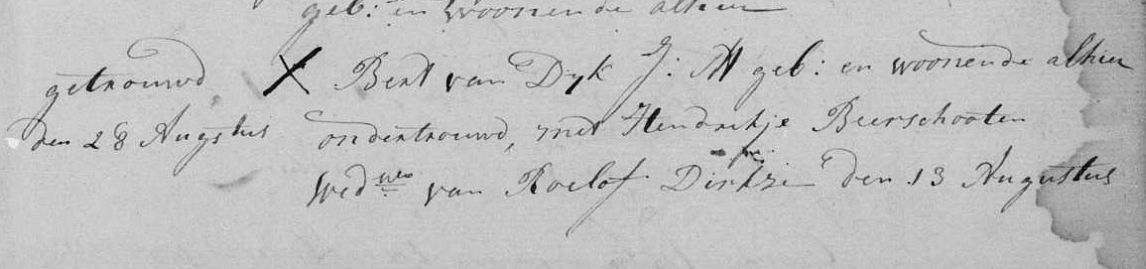 geb: en woonende alhier
getrouwd X Bert van Dyk J: M geb: en woonende alhier
den 28 Augstus ondertrouwd, met Hendrikje Beerschooten
Wed.wee van Roelof Dirkze den 13 Augustus